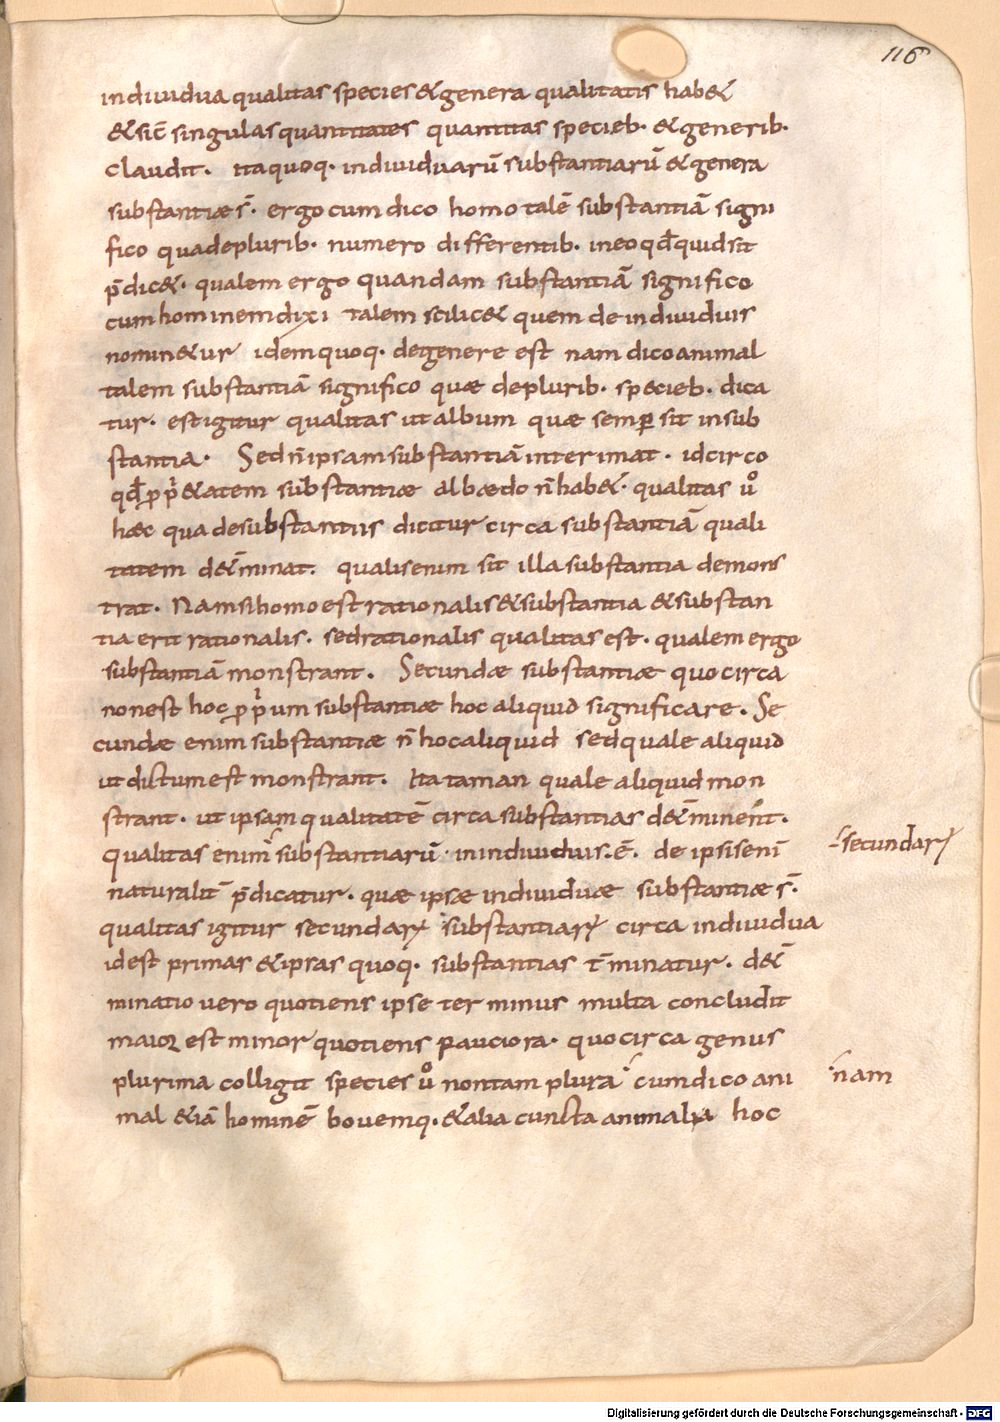 116
indiuidua qualitas species & genera qualitatis hab&
& sic̄ singulas quantitates quantitas specieb· & generib·
claudit· ita quoq· indiuiduarū substantiarū & genera
substantiæ s̄· ergo cum dico homo talē substantiā signi
fico qua de plurib· numero differentib· in eo qđ quid sit
p̄dic&· qualem ergo quandam substantiā significo
cum hominem dixi talem scilic& quem de indiuiduis
nomin&ur idem quoq· de genere est nam dico animal
talem substantiā significo quæ de plurib· specieb· dica
tur· est igitur qualitas ut album quæ semꝑ sit in sub
stantia· Sed n̄ ipsam substantiā interimat· idcirco
qđ ꝓpri&atem substantiæ albædo n̄ hab&· qualitas uͦ
hæc qua de substantiis dicitur circa substantiā quali
tatem d&̄minat· qualis enim sit illa substantia demons
trat· Nam si homo est rationalis & substantia & substan
tia erit rationalis· sed rationalis qualitas est· qualem ergo
substantiā monstrant· Secundæ substantiæ quo circa
non est hoc ꝓprium substantiæ hoc aliquid significare· Se
cundæ enim substantiæ n̄ hoc aliquid sed quale aliquid
ut dictum est monstrant· Ita taman quale aliquid mon
strant· ut ipsam qualitatē circa substantias d&̄minent·
qualitas enim substantiarū· in indiuiduis·ē· de ipsis eni̅
-secundarꝝ
naturalit̄ p̄dicatur· quæ ipsæ indiuiduæ substantiæ s̄·
qualitas igitur secundarꝝ substantiarꝝ circa indiuidua
id est primas & ipsas quoq· substantias t̄minatur· d&̄
minatio uero quotiens ipse terminus multa concludit
maior est minor quotiens pauciora· quo circa genus
plurima colligit species uͦ non tam plura cum dico ani
nam
mal &iā hominē bouemq·& alia cuncta animalia hoc
Digitalisierung gefördert durch die Deutsche Forschungsgemeinschaft - DFG